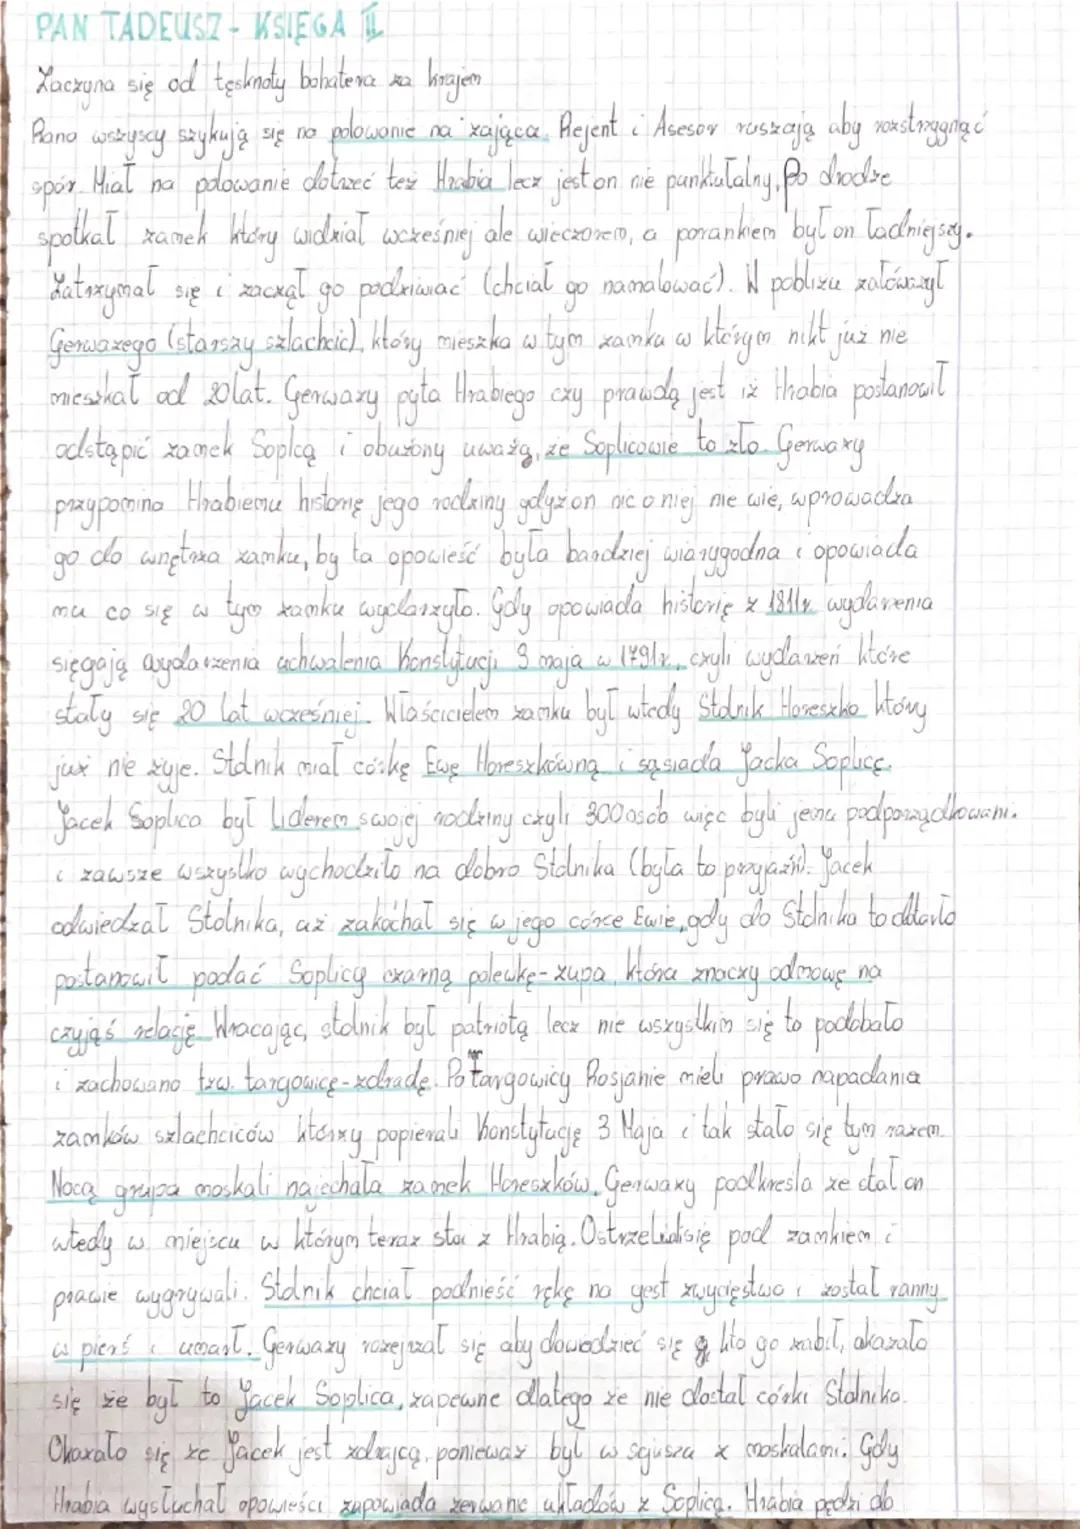 PAN TADEUSZ - KSIĘGA II
Zaczyna się od tęsknoty bohatera za krajem
Rano wszyscy szykują się na polowanie na zająca. Rejent i Asesor ruszają aby rozstrzygnąć
spór. Miał na polowanie dotrzeć też Hrabia lecz jest on nie punktualny. Po drodze
spotkał zamek który widział wcześniej ale wieczorem, a porankiem był on ładniejszy.
Zatrzymał się i zaczął go podziwiać (chciał go namalować). W pobliżu załóważył
Gerwazego (starszy szlachcic), który mieszka w tym zamku w którym nikt już nie
mieszkał od 20 lat. Gerwazy pyta Hrabiego czy prawdą jest iż Hrabia postanowił
odstąpić zamek Soplcą i obużony uważa, że Soplicowie to zło. Gerwazy
przypomina Hrabiemu historię jego rodziny gdyż on nic o niej nie wie, wprowadza
go do wnętrza zamku, by ta opowieść była bardziej wiarygodna i opowiada
mu co się w tym zamku wydarzyło. Gdy opowiada historię z 1811r. wydarenia
sięgają wydarzenia uchwalenia Konstytucji 3 maja w 1791r., czyli wydarzeń które
stały się 20 lat wcześniej. Właścicielem zamku był wtedy Stolnik Horeszko który
już nie żyje. Stolnik miał córkę Ewę Horeszkówną i sąsiada Jacka Soplicę.
Jacek Soplica był liderem swojej rodziny czyli 300 osób więc byli jemu podporządkowani.
i zawsze wszystko wychodziło na dobro Stolnika (była to przyjaźń). Jacek
odwiedzał Stolnika, aż zakochał się w jego córce Ewie, gdy do Stolnika to dotarło
postanowił podać Soplicy czarną polewkę - zupa, która znaczy odmowę na
czyjąś relację. Wracając, stolnik był patriotą lecz nie wszystkim się to podobało
i zachowano tzw. targowicę - zdradę. Po targowicy Rosjanie mieli prawo napadania
zamków szlachciców którzy popierali Konstytucję 3 Maja i tak stało się tym razem.
Nocą grupa moskali najechała zamek Horeszków. Gerwazy podkreśla ze stał on
wtedy w miejscu w którym teraz stoi z Hrabią. Ostrzeliwali się pod zamkiem i
prawie wygrywali. Stolnik chciał podnieść rękę na gest zwycięstwa i został ranny
w pierś i umarł. Gerwazy rozejrzał się aby dowiedzieć się kto go zabił, okazało
się że był to Jacek Soplica, zapewne dlatego że nie dostał córki Stolnika.
Okazało się że Jacek jest zdrajcą, ponieważ był w sojuszu z moskalami. Gdy
Hrabia wysłuchał opowieści zapowiada zerwanie układów z Soplicą. Hrabia pędzi do